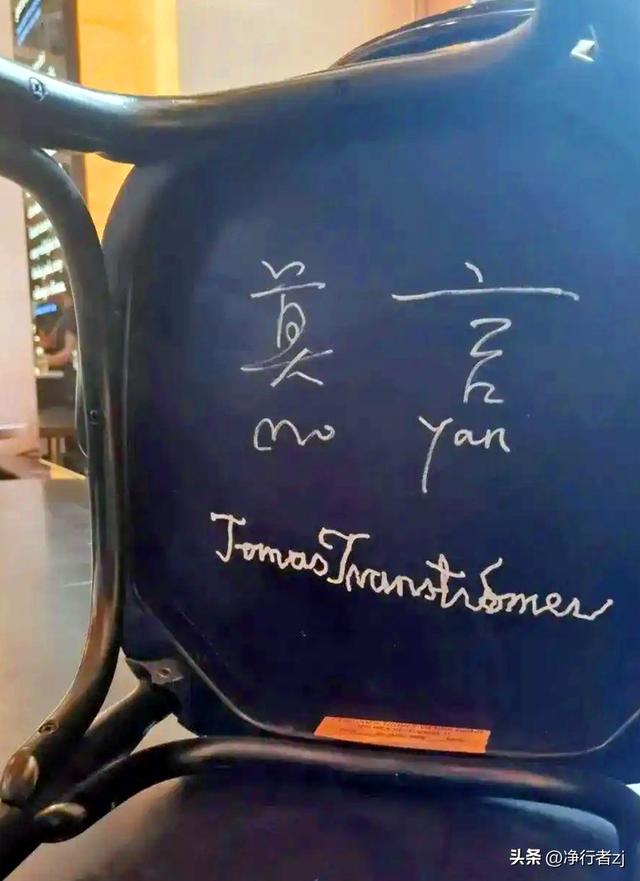 莫 言
mo yan
Tomas Tranströmer
头条 @净行者zj